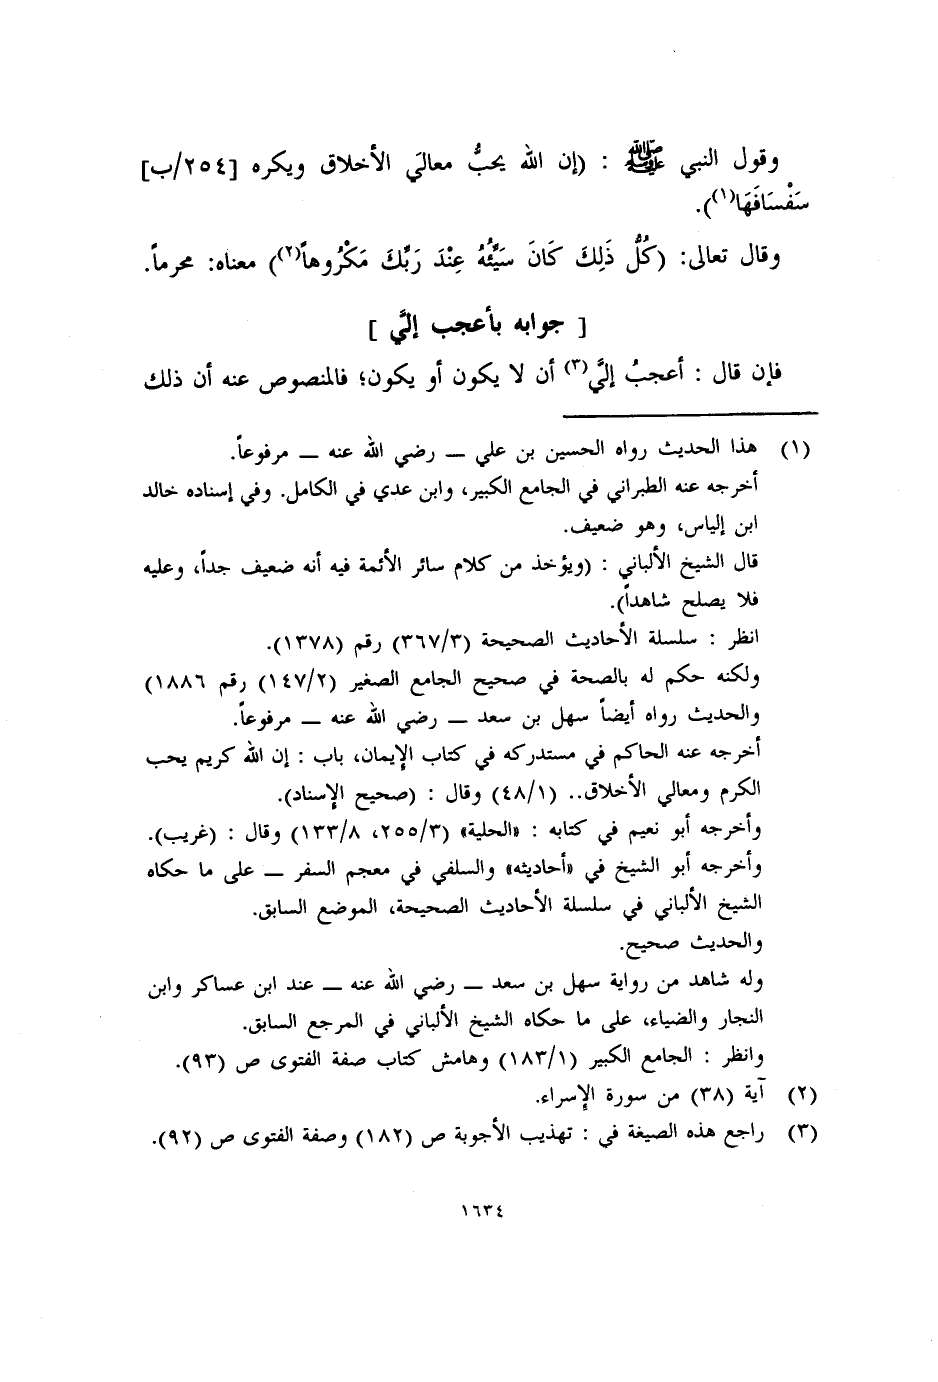 وقول النبي ﷺ : (إن الله يحبُّ معاليَ الأخلاق ويكره [٢٥٤/ب]
سَفْسَافَهَا(١)).
وقال تعالى: (كُلُّ ذَلِكَ كَانَ سَيِّئُهُ عِنْدَ رَبِّكَ مَكْرُوهاً(٢)) معناه: محرماً.
[ جوابه بأعجب إليَّ ]
فإن قال : أعجبُ إليَّ(٣) أن لا يكون أو يكون؛ فالمنصوص عنه أن ذلك
(١) هذا الحديث رواه الحسين بن علي ــ رضي الله عنه ــ مرفوعاً.
أخرجه عنه الطبراني في الجامع الكبير، وابن عدي في الكامل. وفي إسناده خالد
ابن إلياس، وهو ضعيف.
قال الشيخ الألباني : (ويؤخذ من كلام سائر الأئمة فيه أنه ضعيف جداً، وعليه
فلا يصلح شاهداً).
انظر : سلسلة الأحاديث الصحيحة (٣٦٧/٣) رقم (١٣٧٨).
ولكنه حكم له بالصحة في صحيح الجامع الصغير (١٤٧/٢) رقم ١٨٨٦)
والحديث رواه أيضاً سهل بن سعد ــ رضي الله عنه ــ مرفوعاً.
أخرجه عنه الحاكم في مستدركه في كتاب الإيمان، باب : إن الله كريم يحب
الكرم ومعالي الأخلاق.. (٤٨/١) وقال : (صحيح الإسناد).
وأخرجه أبو نعيم في كتابه : «الحلية» (٢٥٥/٣، ١٣٣/٨) وقال : (غريب).
وأخرجه أبو الشيخ في «أحاديثه» والسلفي في معجم السفر ــ على ما حكاه
الشيخ الألباني في سلسلة الأحاديث الصحيحة، الموضع السابق.
والحديث صحيح.
وله شاهد من رواية سهل بن سعد ــ رضي الله عنه ــ عند ابن عساكر وابن
النجار والضياء، على ما حكاه الشيخ الألباني في المرجع السابق.
وانظر : الجامع الكبير (١٨٣/١) وهامش كتاب صفة الفتوى ص (٩٣).
(٢) آية (٣٨) من سورة الإسراء.
(٣) راجع هذه الصيغة في : تهذيب الأجوبة ص (١٨٢) وصفة الفتوى ص (٩٢).
١٦٣٤